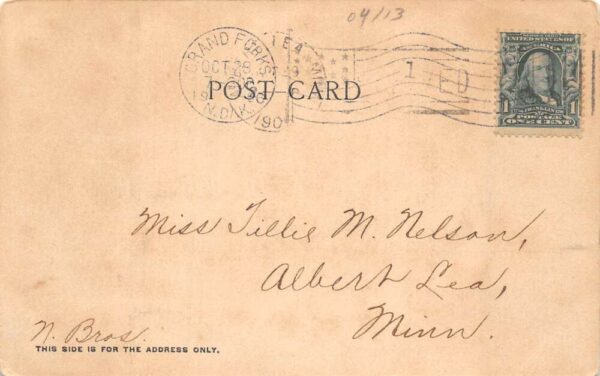 04/13
GRAND FORKS
OCT 28
N.D.
190
POST CARD
1
UNITED STATES OF AMERICA
FRANKLIN
1 1
POSTAGE
ONE CENT
Miss Tillie M. Nelson,
Albert Lea,
Minn.
N. Bros.
THIS SIDE IS FOR THE ADDRESS ONLY.